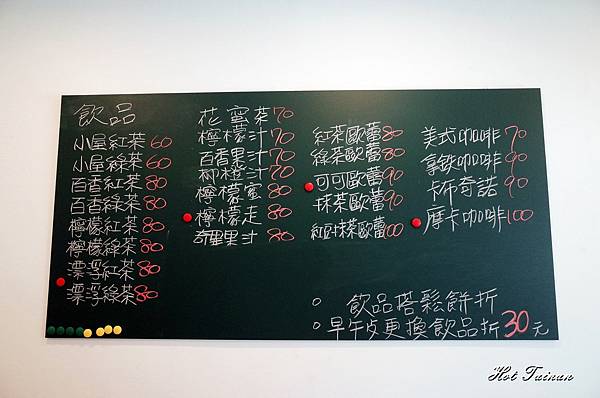 飲品
小屋紅茶60
小屋綠茶60
百香紅茶80
百香綠茶80
檸檬紅茶80
檸檬綠茶80
漂浮紅茶80
漂浮綠茶80
花蜜茶70
檸檬汁70
百香果汁70
柳橙汁70
檸檬蜜80
檸檬走80
奇異果汁80
紅茶歐蕾80
綠茶歐蕾80
可可歐蕾90
抹茶歐蕾90
紅豆抹茶歐蕾100
美式咖啡70
拿鐵咖啡90
卡布奇諾90
摩卡咖啡100
。飲品搭鬆餅折
。早午皮更換飲品折30元
Hot Tainan